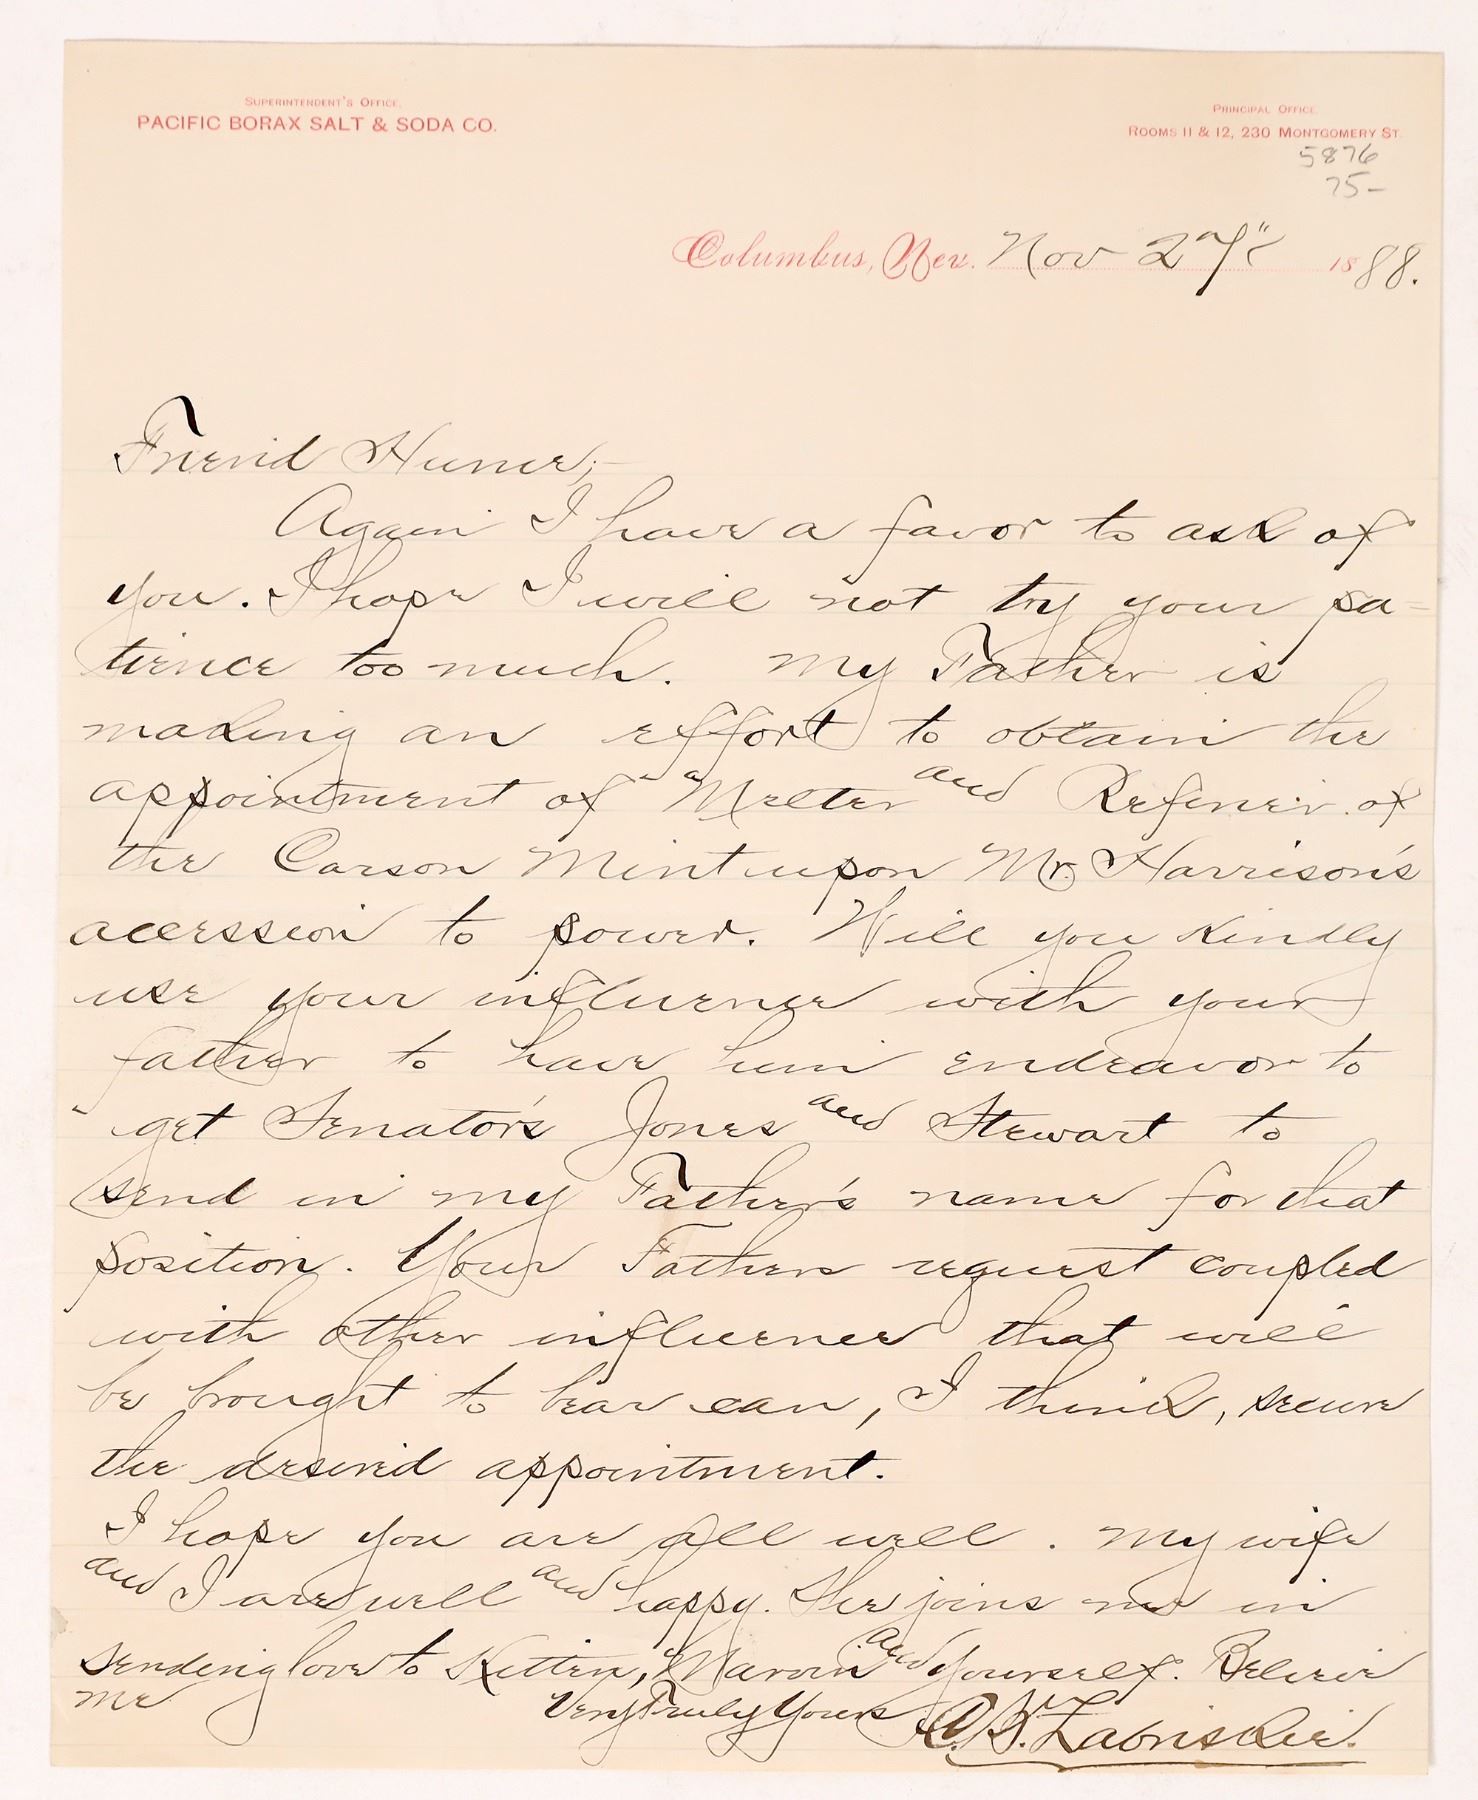 SUPERINTENDENT'S OFFICE,
PACIFIC BORAX SALT & SODA CO.
PRINCIPAL OFFICE
ROOMS 11 & 12, 230 MONTGOMERY ST.
5876
75-
Columbus, Nev. Nov 27th 1888.
Friend Hume;-
Again I have a favor to ask of
you. I hope I will not try your pa-
tience too much. My Father is
making an effort to obtain the
appointment of Melter and Refiner of
the Carson Mint upon Mr. Harrison's
accession to power. Will you kindly
use your influence with your
father to have him endeavor to
get Senator's Jones and Stewart to
send in my Father's name for that
position. Your Fathers request coupled
with other influence that will
be brought to bear can, I think, secure
the desired appointment.
I hope you are all well. My wife
and I are well and happy. She joins me in
sending love to Kitten, Marvin and yourself. Believe
me Very Truly Yours Zabriskie.